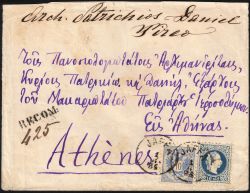 Arch. Patrichios - Daniel
Vireo
Τοῖς Πανοσιολογιωτάτοις Ἀρχιμανδρίταις
Κυρίοις Πατρικίῳ κὴ Δανιήλ, Ἐξάρχοις
τοῦ Μακαριωτάτου Πατριάρχου Ἱεροσολύμων
Εἰς Ἀθήνας.
RECOM
425
Athènes